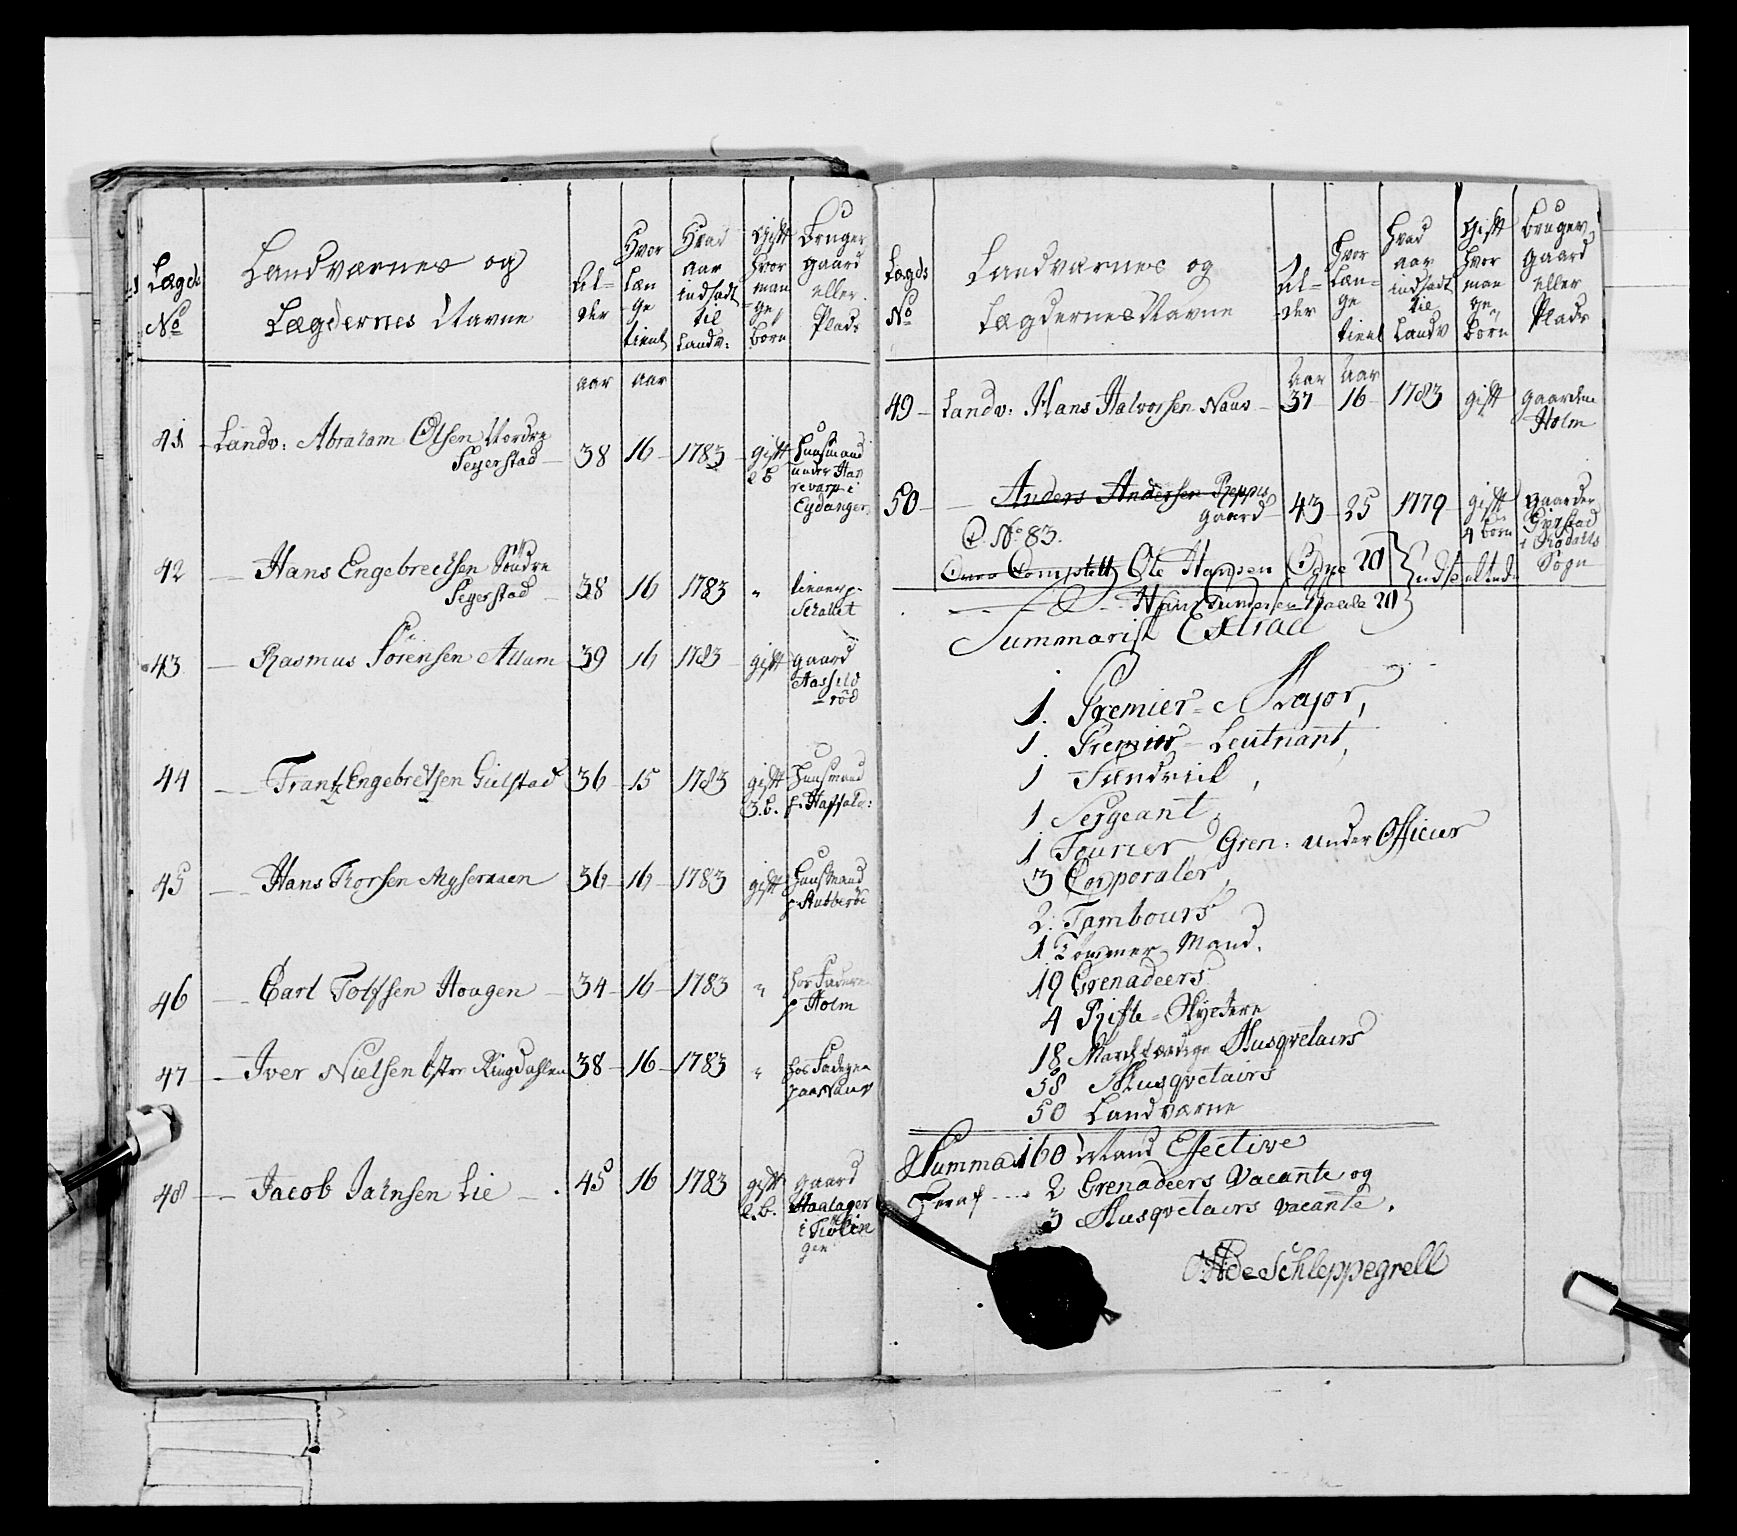 Lægds
No
Landværnes og
Lægdernes Navne
Al-
der
Hvor
Læn
ge
tient
Hvad
aar
indsadt
til
Landv:
Gift
hvor
man
ge
børn
Bruger
gaard
eller
Plads
aar aar
41 Landv: Abraham Olsen Nordre
Seyerstad 38 16 1783 gift
2 b
Huusmand
under
i
Eydanger
42 Hans Engebretsen Søndre
Seyerstad 38 16 1783 "
tienner p.
43 Rasmus Sørensen Allum 39 16 1783 gift
gaard
Aasfeld
rød
44 Frantz Engebretsen Gielstad 36 15 1783 gift
3. b.
Huusmand
p.
45 Hans Thorsen 36 16 1783 gift
Huusmand
p.
46 Carl Tolfsen Hougen 34 16 1783 "
hos Faderen
p Holm
47 Iver Nielsen Oster Ringdahlen 38 16 1783 "
hos Faderen
paa Naus
48 Jacob Jahnsen Lie 45 16 1783 gift
2. b.
gaard
i
gen
Lægds
No
Landværnes og
Lægdernes Navne
Al-
der
Hvor
Læn-
ge
tient
Hvad
aar
indsadt
til
Landv
Gift
hvor
man
ge
børn
Bruger
Gaard
eller
Plads
Aar Aar
49 Landv: Hans Halvorsen Naus 37 16 1783 gift gaarden
Holm
50 Anders Andersen
gaard 43 25 1779 gift
4 børn
gaarden
i
Sogn
C. No 83.
Over Complett Ole Hansen 20
20
Summarisk Extract
1. Premier-Major,
1. Premier-Leutnant,
1 Fendrick,
1 Sergeant,
1 Fourier Gren: under Officier
3 Corporaler
2. Tambours
1 Tømmer Mand.
19 Grenadeers
4 Rifle-Skyttere
18 Marchfærdige Musqvetairs
58 Musqvetairs
50 Landværne
Summa 160 Mand Effective
Heraf ---- 2 Grenadeers Vacante og
3 Musqvetairs vacante.
de Schleppegrell